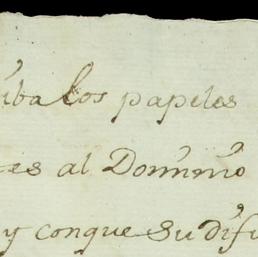 iba los papeles
es al Dominio
y conque su difu